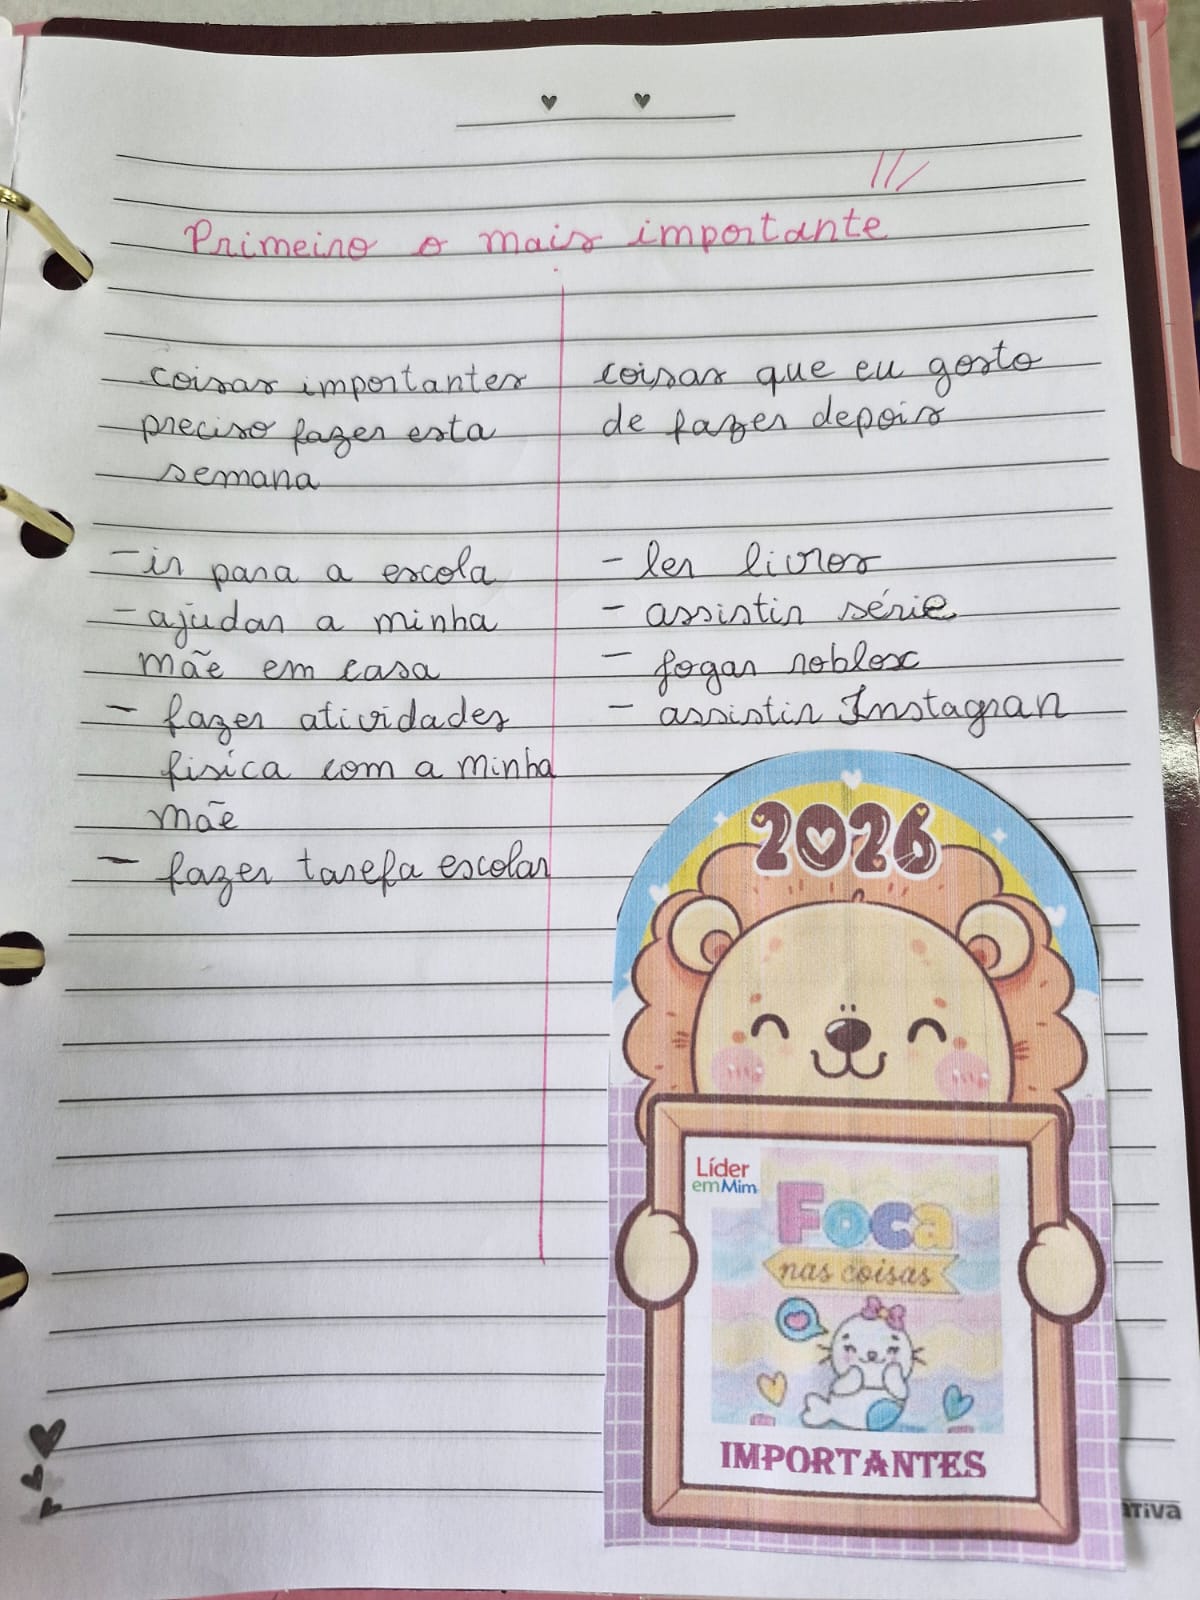 Primeiro o mais importante
coisas importantes
preciso fazer esta
semana
- ir para a escola
- ajudar a minha
mãe em casa
- fazer atividades
fisica com a minha
mãe
- fazer tarefa escolar
coisas que eu gosto
de fazer depois
- ler livros
- assistir série
- jogar roblox
- assistir Instagran
2026
Líder
emMim
Foca
nas coisas
IMPORTANTES